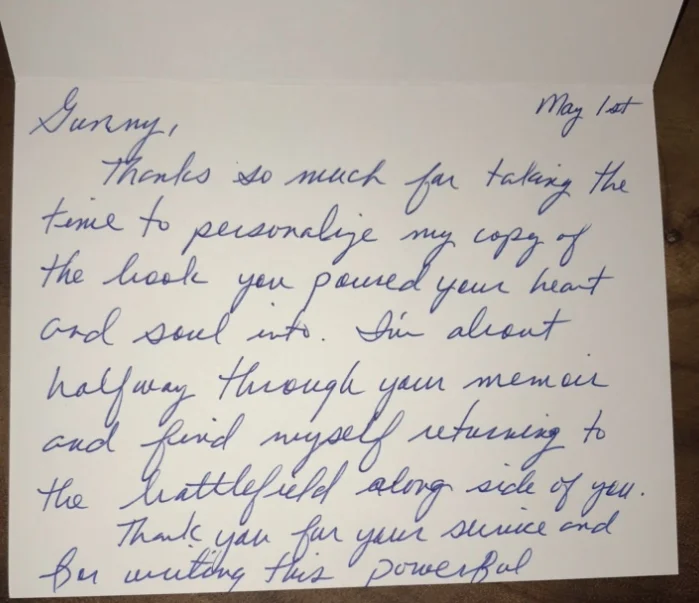 May 1st
Gunny,
Thanks so much for taking the
time to personalize my copy of
the book you poured your heart
and soul into. I'm about
halfway through your memoir
and find myself returning to
the battlefield along side of you.
Thank you for your service and
for writing this powerful